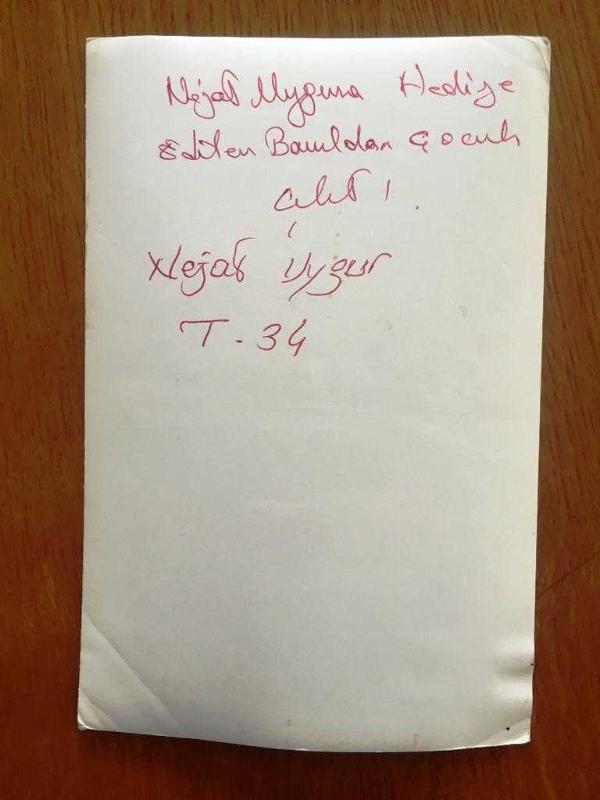 Nejat Uygura Hediye
Edilen Bavuldan Çocuk
Çıktı!
Nejat Uygur
T-34